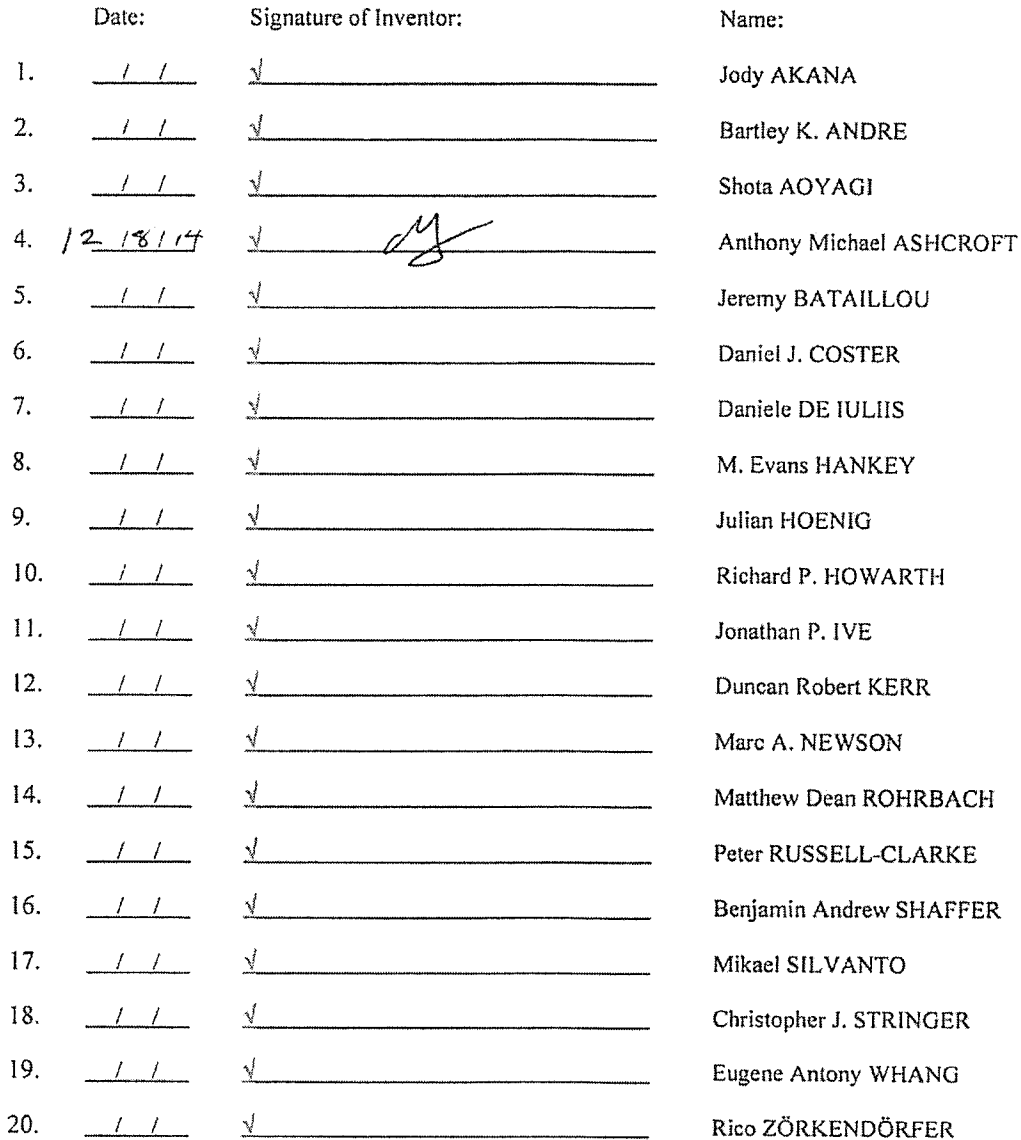 Date: Signature of Inventor: Name:
1. / / √ Jody AKANA
2. / / √ Bartley K. ANDRE
3. / / √ Shota AOYAGI
4. 12 /8/ 14 √ Anthony Michael ASHCROFT
5. / / √ Jeremy BATAILLOU
6. / / √ Daniel J. COSTER
7. / / √ Daniele DE IULIIS
8. / / √ M. Evans HANKEY
9. / / √ Julian HOENIG
10. / / √ Richard P. HOWARTH
11. / / √ Jonathan P. IVE
12. / / √ Duncan Robert KERR
13. / / √ Marc A. NEWSON
14. / / √ Matthew Dean ROHRBACH
15. / / √ Peter RUSSELL-CLARKE
16. / / √ Benjamin Andrew SHAFFER
17. / / √ Mikael SILVANTO
18. / / √ Christopher J. STRINGER
19. / / √ Eugene Antony WHANG
20. / / √ Rico ZÖRKENDÖRFER